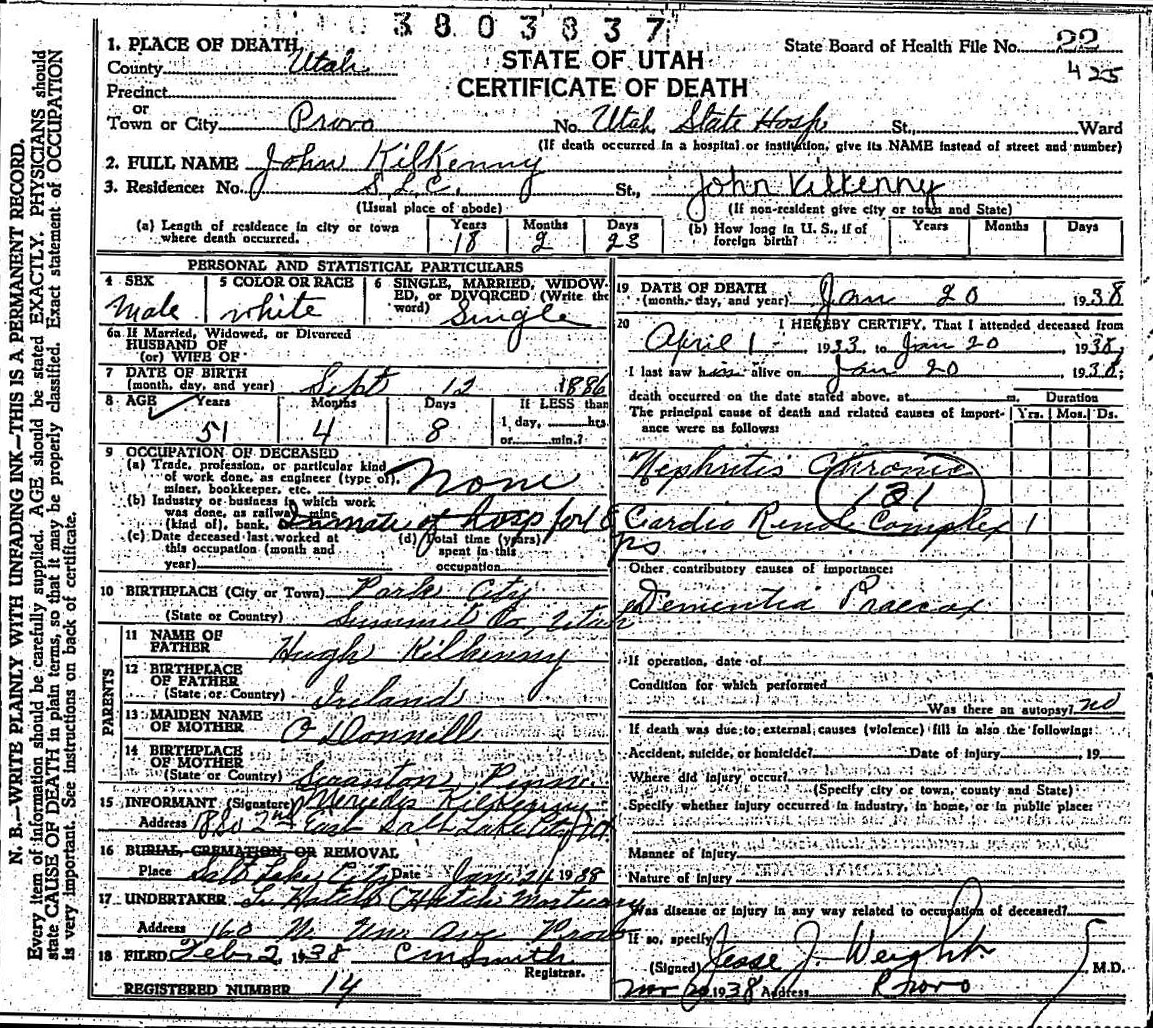 3803837
1. PLACE OF DEATH
State Board of Health File No. 22
425
County Utah
STATE OF UTAH
CERTIFICATE OF DEATH
Precinct
or
Town or City Provo No. Utah State Hosp St., Ward
(If death occurred in a hospital or institution, give its NAME instead of street and number)
2. FULL NAME John Kilkenny
3. Residence: No. S.L.C. St., John Kilkenny
(Usual place of abode) (If non-resident give city or town and State)
(a) Length of residence in city or town where death occurred. Years 18 Months 2 Days 23
(b) How long in U. S., if of foreign birth? Years Months Days
PERSONAL AND STATISTICAL PARTICULARS
4 SEX Male
5 COLOR OR RACE white
6 SINGLE, MARRIED, WIDOWED, or DIVORCED (Write the word) Single
6a If Married, Widowed, or Divorced
HUSBAND OF
(or) WIFE OF
7 DATE OF BIRTH
(month, day, and year) Sept 12 1886
8 AGE Years 51 Months 4 Days 8
If LESS than
1 day, hrs.
or min.?
9 OCCUPATION OF DECEASED
(a) Trade, profession, or particular kind
of work done, as engineer (type of),
miner, bookkeeper, etc. None
(b) Industry or business in which work
was done, as railway, mine
(kind of), bank, Inmate of hosp for 18
yrs
(c) Date deceased last worked at
this occupation (month and
year)
(d) Total time (years)
spent in this
occupation
10 BIRTHPLACE (City or Town) Park City
(State or Country) Summit Co, Utah
PARENTS
11 NAME OF
FATHER Hugh Kilkenny
12 BIRTHPLACE
OF FATHER
(State or Country) Ireland
13 MAIDEN NAME
OF MOTHER O Donnell
14 BIRTHPLACE
OF MOTHER
(State or Country) Scranton, Penn.
15 INFORMANT (Signature) Mercedes Kilkenny
Address 1880 2nd East Salt Lake City
16 BURIAL, CREMATION, OR REMOVAL
Place Salt Lake City Date Jan. 21 1938
17 UNDERTAKER Hatch Mortuary
Address 160 N. Univ Ave Provo
18 FILED Feb 2, 1938 C M Smith
Registrar.
REGISTERED NUMBER 14
19 DATE OF DEATH
(month, day, and year) Jan 20 1938
20 I HEREBY CERTIFY, That I attended deceased from
April 1 1933, to Jan 20 1938;
I last saw him alive on Jan 20 1938;
death occurred on the date stated above, at m.
Duration
The principal cause of death and related causes of importance were as follows:
Yrs. Mos. Ds.
Nephritis Chronic
131
Cardio Renal Complex 1
Other contributory causes of importance:
Dementia Praecox
If operation, date of
Condition for which performed
Was there an autopsy? no
If death was due to external causes (violence) fill in also the following:
Accident, suicide, or homicide? Date of injury 19
Where did injury occur?
(Specify city or town, county and State)
Specify whether injury occurred in industry, in home, or in public place:
Manner of injury
Nature of injury
Was disease or injury in any way related to occupation of deceased?
If so, specify
(Signed) Jesse J. Weight M.D.
1938 Address Provo
N. B.—WRITE PLAINLY WITH UNFADING INK—THIS IS A PERMANENT RECORD.
Every item of information should be carefully supplied. AGE should be stated EXACTLY. PHYSICIANS should
state CAUSE OF DEATH in plain terms, so that it may be properly classified. Exact statement of OCCUPATION
is very important. See instructions on back of certificate.